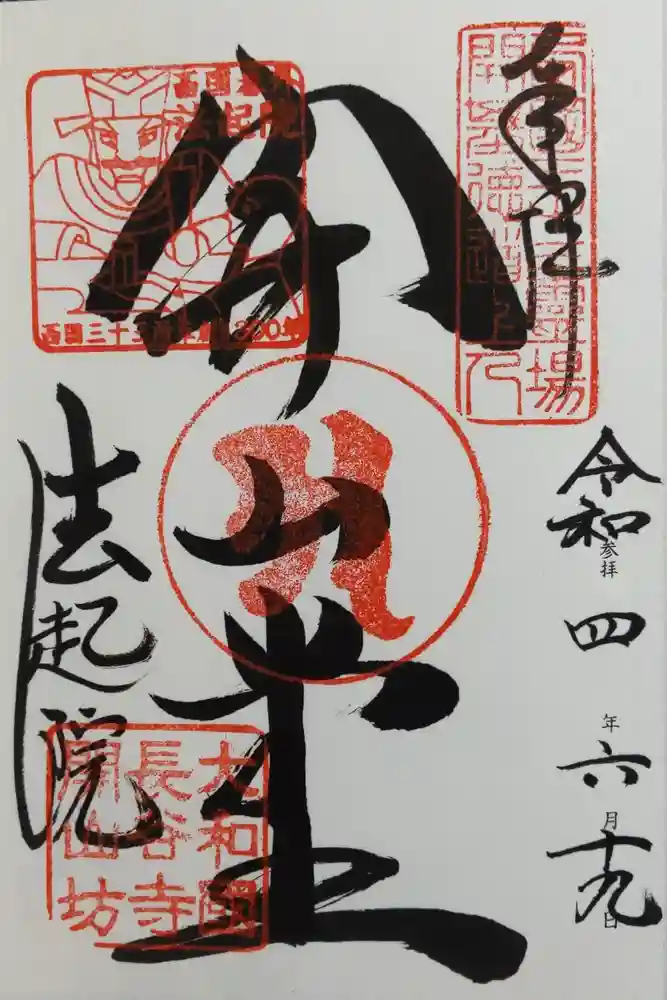 奉拝
西国三十三霊場
開基徳道上人
令和四年六月十九日
参拝
開山堂
西国番外
法起院
西国三十三所草創1300年
法起院
大和國
長谷寺
開山坊